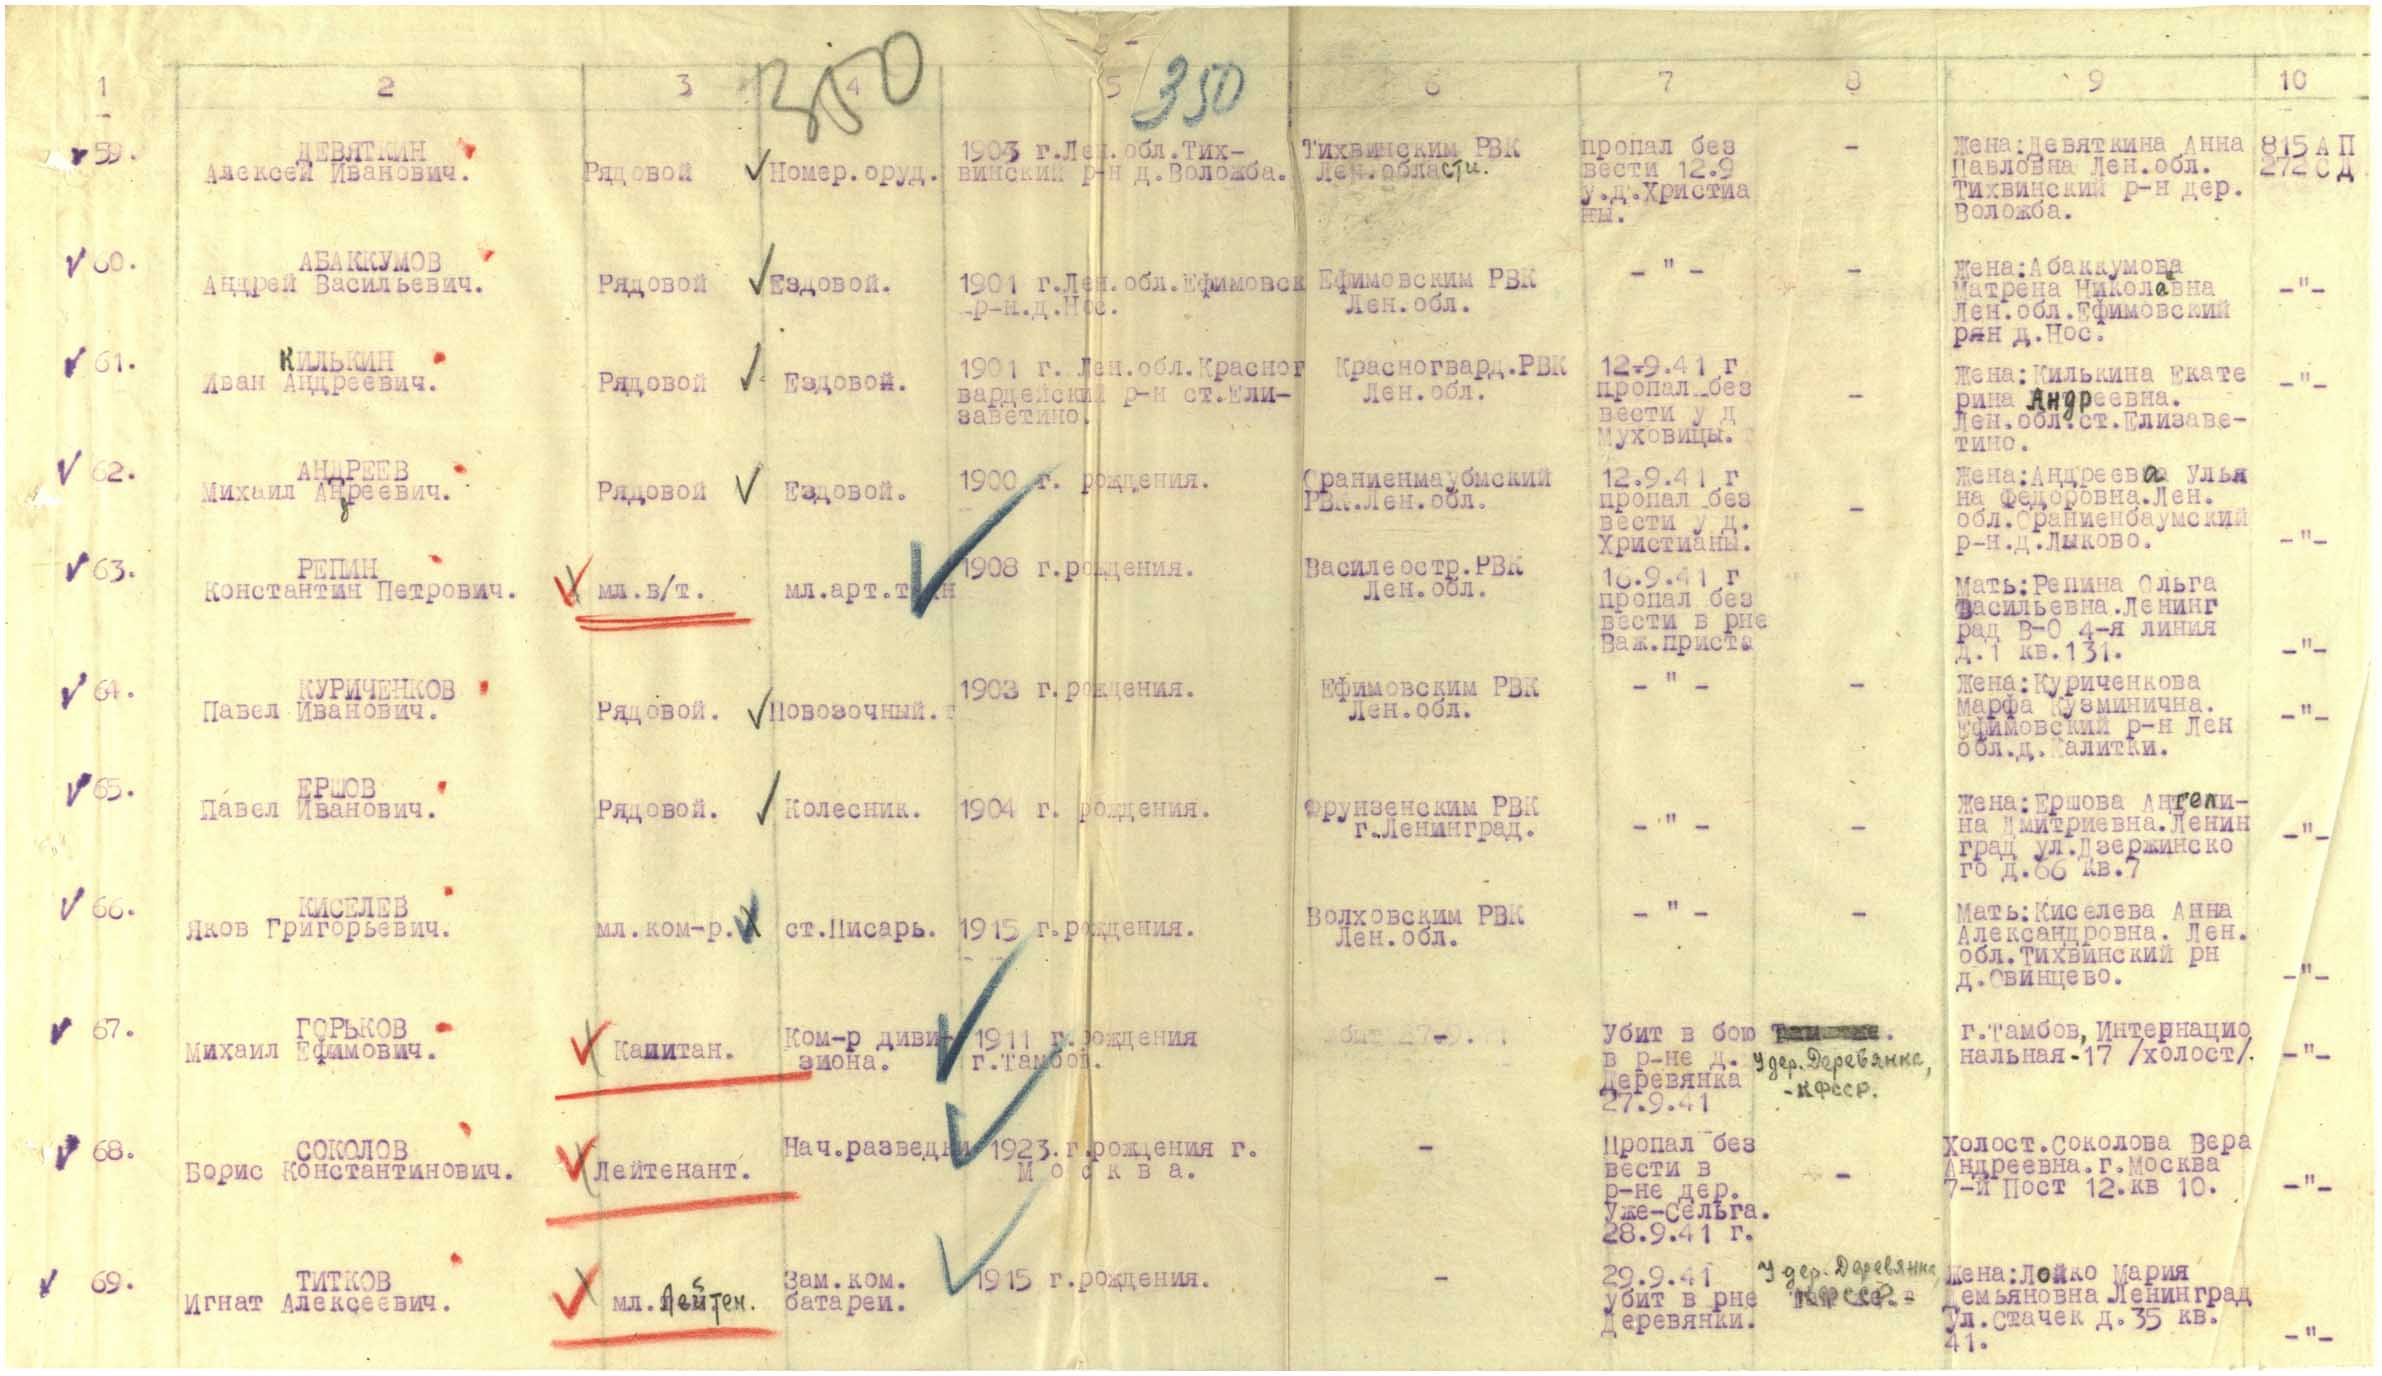 350
350
1 2 3 4 5 6 7 8 9 10
59.
ДЕВЯТКИН
Алексей Иванович.
Рядовой
Номер.оруд.
1903 г.Лен.обл.Тих-
винский р-н д.Воложба.
Тихвинским РВК
Лен.области.
пропал без
вести 12.9
у.д.Христиа
ны.
-
Жена:Девяткина Анна
Павловна Лен.обл.
Тихвинский р-н дер.
Воложба.
815 АП
272 СД
60.
АБАККУМОВ
Андрей Васильевич.
Рядовой
Ездовой.
1901 г.Лен.обл.Ефимовск
р-н.д.Нос.
Ефимовским РВК
Лен.обл.
-"-
-
Жена:Абаккумова
Матрена Николаевна
Лен.обл.Ефимовский
рян д.Нос.
-"-
61.
КИЛЬКИН
Иван Андреевич.
Рядовой
Ездовой.
1901 г. Лен.обл.Красног
вардейский р-н ст.Ели-
заветино.
Красногвард.РВК
Лен.обл.
12.9.41 г
пропал без
вести у д
Муховицы.
-
Жена:Килькина Екате
рина Андреевна.
Лен.обл.ст.Елизаве-
тино.
-"-
62.
АНДРЕЕВ
Михаил Андреевич.
Рядовой
Ездовой.
1900 г. рождения.
Ораниенмаубмский
РВК.Лен.обл.
12.9.41 г
пропал без
вести у д.
Христианы.
-
Жена:Андреева Улья
на Федоровна.Лен.
обл.Ораниенбаумский
р-н.д.Лыково.
-"-
63.
РЕПИН
Константин Петрович.
мл.в/т.
мл.арт.т
1908 г.рождения.
Василеостр.РВК
Лен.обл.
16.9.41 г
пропал без
вести в рне
Важ.приста
Мать:Репина Ольга
Васильевна.Ленинг
рад В-О 4-я линия
д.1 кв.131.
-"-
64.
КУРИЧЕНКОВ
Павел Иванович.
Рядовой.
Повозочный.
1903 г.рождения.
Ефимовским РВК
Лен.обл.
-"-
-
Жена:Куриченкова
Марфа Кузминична.
Ефимовский р-н Лен
обл.д.Калитки.
-"-
65.
ЕРШОВ
Павел Иванович.
Рядовой.
Колесник.
1904 г. рождения.
Фрунзенским РВК
г.Ленинград.
-"-
-
Жена:Ершова Ангели-
на Дмитриевна.Ленин
град ул.Дзержинско
го д.66 кв.7
-"-
66.
КИСЕЛЕВ
Яков Григорьевич.
мл.ком-р.
ст.Писарь.
1915 г.рождения.
Волховским РВК
Лен.обл.
-"-
-
Мать:Киселева Анна
Александровна. Лен.
обл.Тихвинский рн
д.Свинцево.
-"-
67.
ГОРЬКОВ
Михаил Ефимович.
Капитан.
Ком-р диви-
зиона.
1911 г.рождения
г.Тамбов.
-
Убит в бою
в р-не д.
Деревянка
27.9.41
У дер.Деревянка,
-КФССР.
г.Тамбов, Интернацио
нальная-17 /холост/.
-"-
68.
СОКОЛОВ
Борис Константинович.
Лейтенант.
Нач.разведки
1923.г.рождения г.
М о с к в а.
-
Пропал без
вести в
р-не дер.
Уже-Сельга.
28.9.41 г.
-
Холост.Соколова Вера
Андреевна.г.Москва
7-й Пост 12.кв 10.
-"-
69.
ТИТКОВ
Игнат Алексеевич.
мл.Лейтен.
Зам.ком.
батареи.
1915 г.рождения.
-
29.9.41
убит в рне
Деревянки.
У дер.Деревянка,
КФССР.
Жена:Лойко Мария
Демьяновна Ленинград
ул.Стачек д.35 кв.
41.
-"-